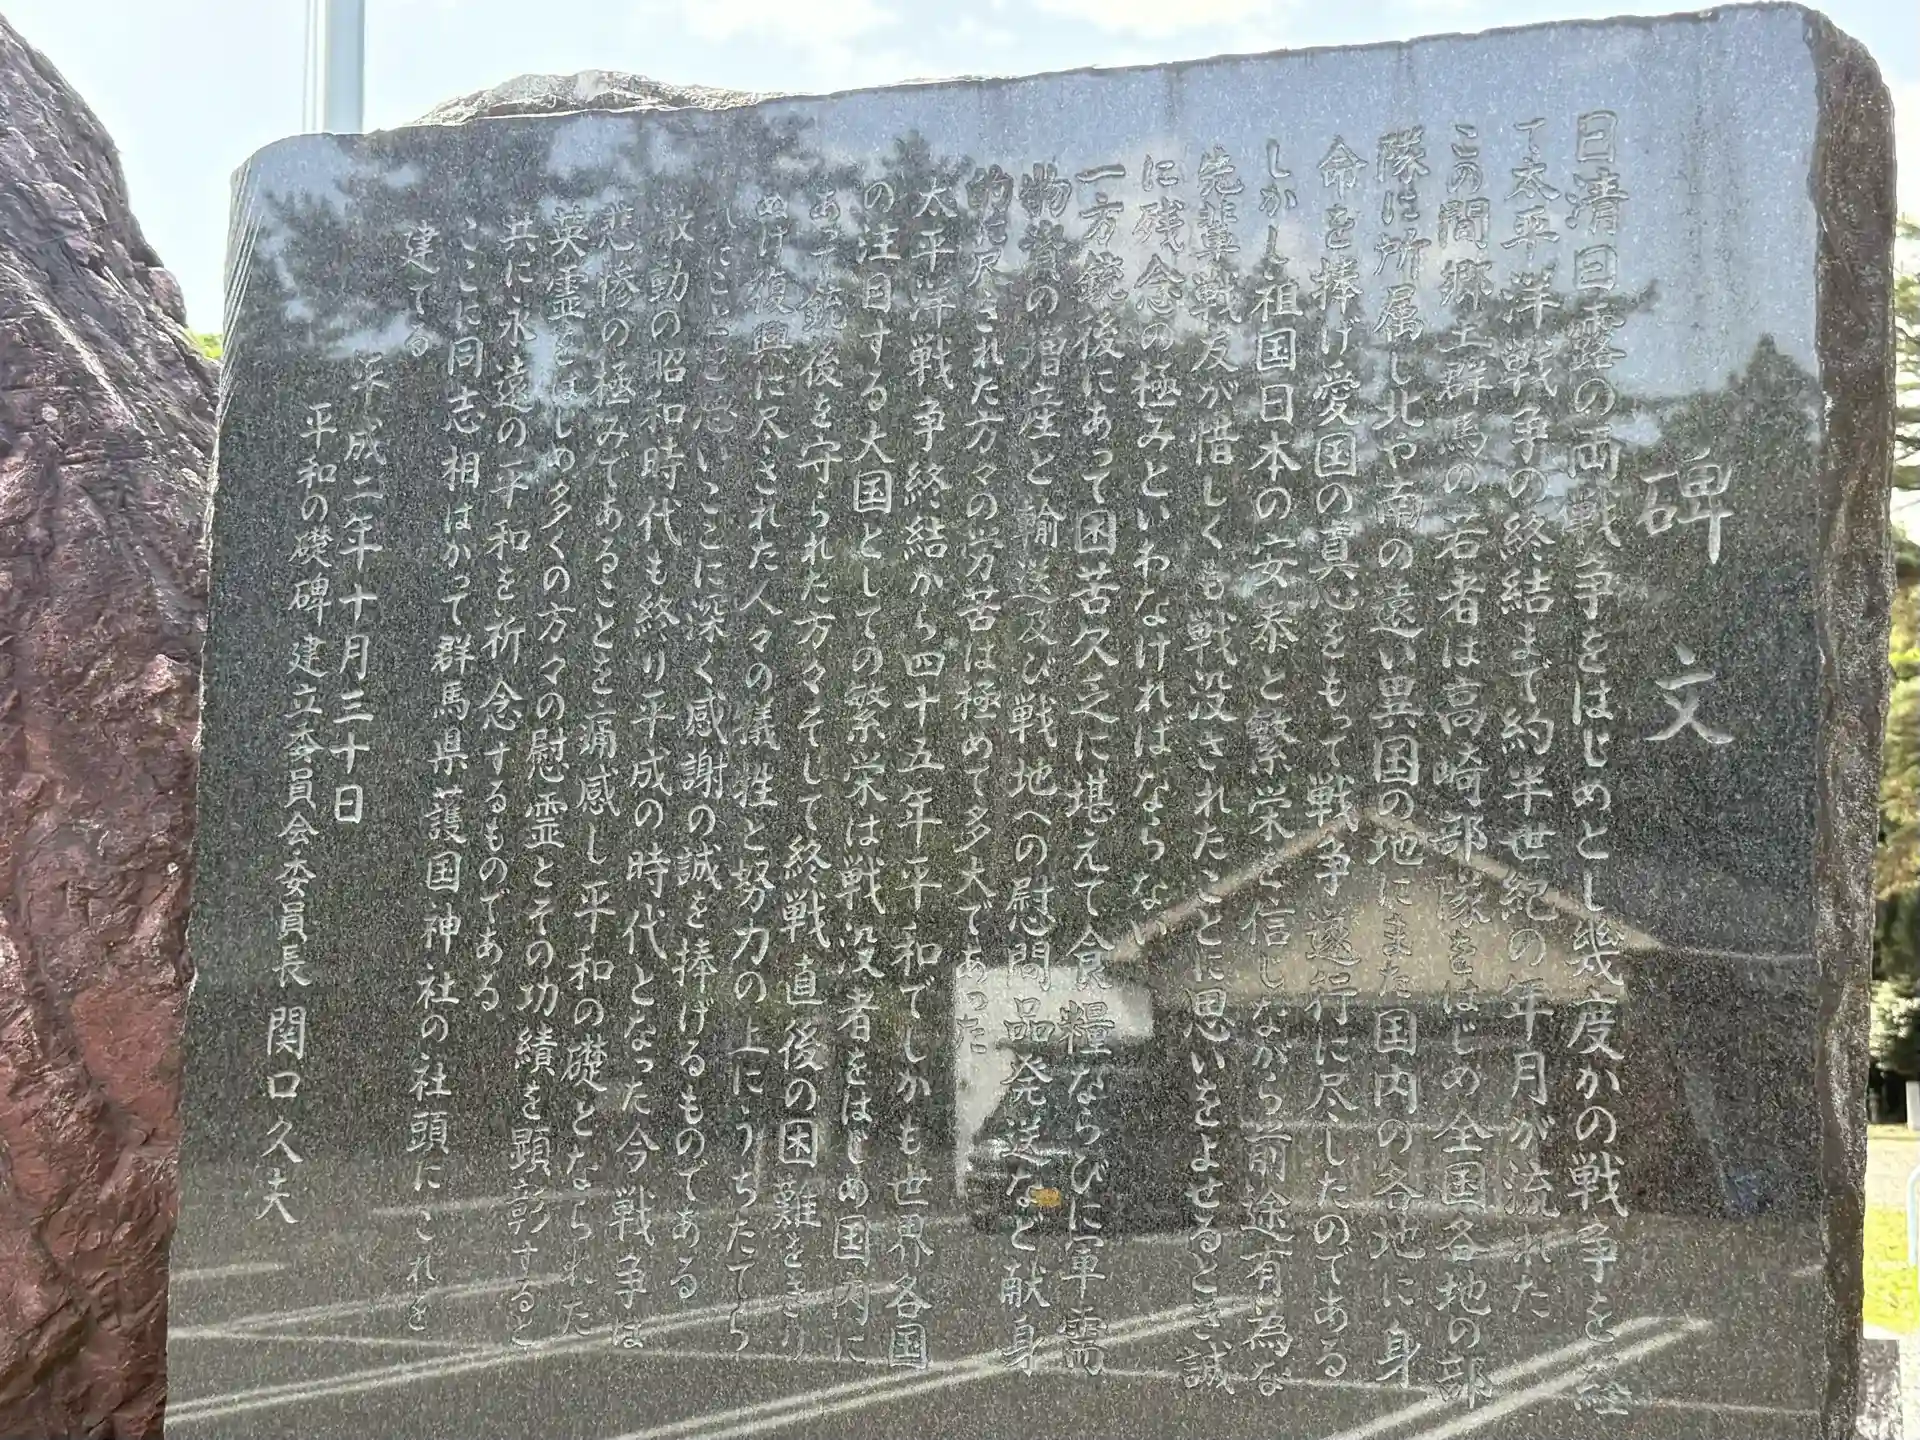 碑文
日清日露の両戦争をはじめとし幾度かの戦争を経
て太平洋戦争の終結まで約半世紀の年月が流れた
この間郷土群馬の若者は高崎部隊をはじめ全国各地の部
隊に所属し北や南の遠い異国の地にまた国内の各地に身
命を捧げ愛国の真心をもって戦争遂行に尽したのである
しかし祖国日本の安泰と繁栄を信じながら前途有為な
先輩戦友が惜しくも戦没されたことに思いをよせるとき誠
に残念の極みといわなければならない
一方銃後にあって困苦欠乏に堪えて食糧ならびに軍需
物資の増産と輸送及び戦地への慰問品発送など献身
的に尽された方々の労苦は極めて多大であった
太平洋戦争終結から四十五年平和でしかも世界各国
の注目する大国としての繁栄は戦没者をはじめ国内に
あって銃後を守られた方々そして終戦直後の困難をきり
ぬけ復興に尽された人々の犠牲と努力の上にうちたてら
れたことを思いここに深く感謝の誠を捧げるものである
激動の昭和時代も終り平成の時代となった今戦争は
悲惨の極みであることを痛感し平和の礎となられた
英霊をはじめ多くの方々の慰霊とその功績を顕彰すると
共に永遠の平和を祈念するものである
ここに同志相はかって群馬県護国神社の社頭にこれを
建てる
平成二年十月三十日
平和の礎碑建立委員会委員長 関口久夫